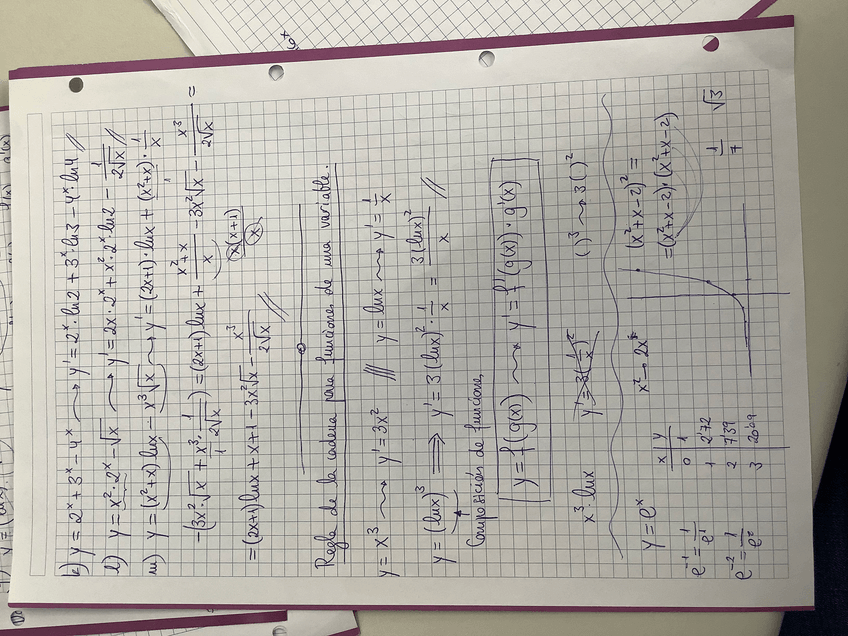 k) y = 2^x + 3^x - 4^x ⟿ y' = 2^x · ln2 + 3^x · ln3 - 4^x · ln4 //
l) y = x^2 · 2^x - √x ⟿ y' = 2x · 2^x + x^2 · 2^x · ln2 - 1/(2√x) //
m) y = (x^2+x) lnx - x^3 √x ⟿ y' = (2x+1) · lnx + (x^2+x) · 1/x
- (3x^2 · √x + x^3 · 1/(2√x)) = (2x+1) lnx + (x^2+x)/x - 3x^2 √x - x^3/(2√x) =
x(x+1)/x
= (2x+1) lnx + x+1 - 3x^2 √x - x^3/(2√x) //
Regla de la cadena para funciones de una variable.
y = x^3 ⟿ y' = 3x^2 /// y = lnx ⟿ y' = 1/x
y = (lnx)^3 ⟹ y' = 3(lnx)^2 · 1/x = 3(lnx)^2/x //
Composición de funciones
y = f(g(x)) ⟿ y' = f'(g(x)) · g'(x)
x^3 · lnx y' = 3(1/x)^2 ( )^3 ⟿ 3( )^2
y = e^x x^2 → 2x (x^2+x-2)^2 =
= (x^2+x-2) · (x^2+x-2)
x y
0 1
1 2'72
2 7'39
3 20'09
e^-1 = 1/e^1
e^-2 = 1/e^2
1/7 √3